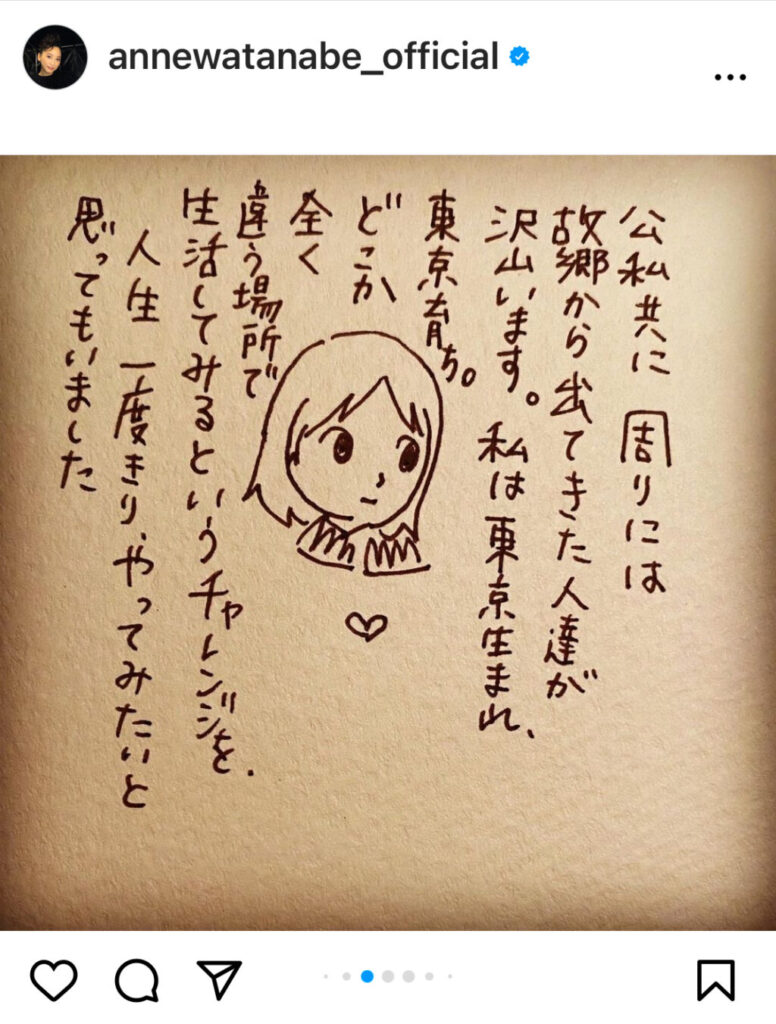 annewatanabe_official
公私共に 周りには
故郷から出てきた人達が
沢山います。私は東京生まれ、
東京育ち。
どこか
全く
違う場所で
生活してみるというチャレンジを.
人生 一度きり、やってみたいと
思ってもいました